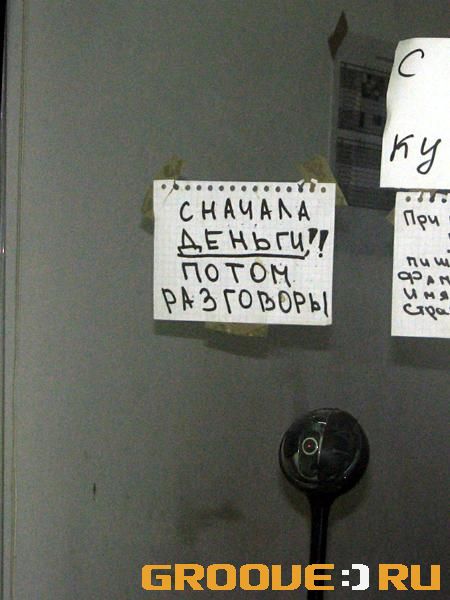 СНАЧАЛА
ДЕНЬГИ!!
ПОТОМ
РАЗГОВОРЫ
С
КУ
При
пиш
Фам
Имя
стра
GROOVE:)RU